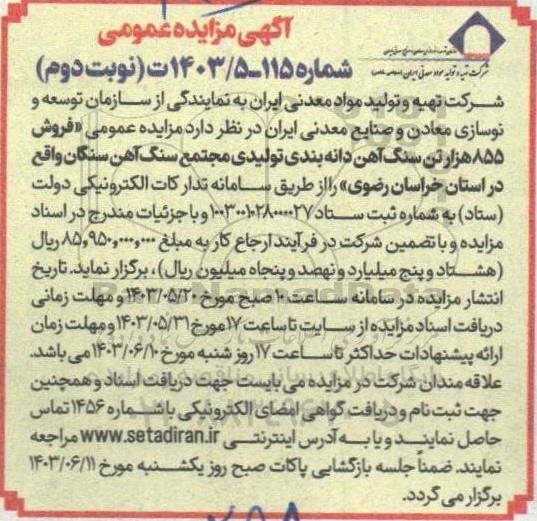 آگهی مزایده عمومی
شماره ۱۱۵-۱۴۰۳/۵ت (نوبت دوم)
شرکت تهیه و تولید مواد معدنی ایران
شرکت تهیه و تولید مواد معدنی ایران به نمایندگی از سازمان توسعه و
نوسازی معادن و صنایع معدنی ایران در نظر دارد مزایده عمومی «فروش
۸۵۵ هزار تن سنگ آهن دانه بندی تولیدی مجتمع سنگ آهن سنگان واقع
در استان خراسان رضوی» را از طریق سامانه تدارکات الکترونیکی دولت
(ستاد) به شماره ثبت ستاد ۱۰۰۳۰۰۱۰۲۸۰۰۰۰۲۷ و با جزئیات مندرج در اسناد
مزایده و با تضمین شرکت در فرآیند ارجاع کار به مبلغ ۸۵,۹۵۰,۰۰۰,۰۰۰ ریال
(هشتاد و پنج میلیارد و نهصد و پنجاه میلیون ریال)، برگزار نماید. تاریخ
انتشار مزایده در سامانه ساعت ۱۰ صبح مورخ ۱۴۰۳/۰۵/۲۰ و مهلت زمانی
دریافت اسناد مزایده از سایت تا ساعت ۱۷ مورخ ۱۴۰۳/۰۵/۳۱ و مهلت زمان
ارائه پیشنهادات حداکثر تا ساعت ۱۷ روز شنبه مورخ ۱۴۰۳/۰۶/۱۰ می باشد.
علاقه مندان شرکت در مزایده می بایست جهت دریافت اسناد و همچنین
جهت ثبت نام و دریافت گواهی امضای الکترونیکی با شماره ۱۴۵۶ تماس
حاصل نمایند و یا به آدرس اینترنتی www.setadiran.ir مراجعه
نمایند. ضمناً جلسه بازگشایی پاکات صبح روز یکشنبه مورخ ۱۴۰۳/۰۶/۱۱
برگزار می گردد.